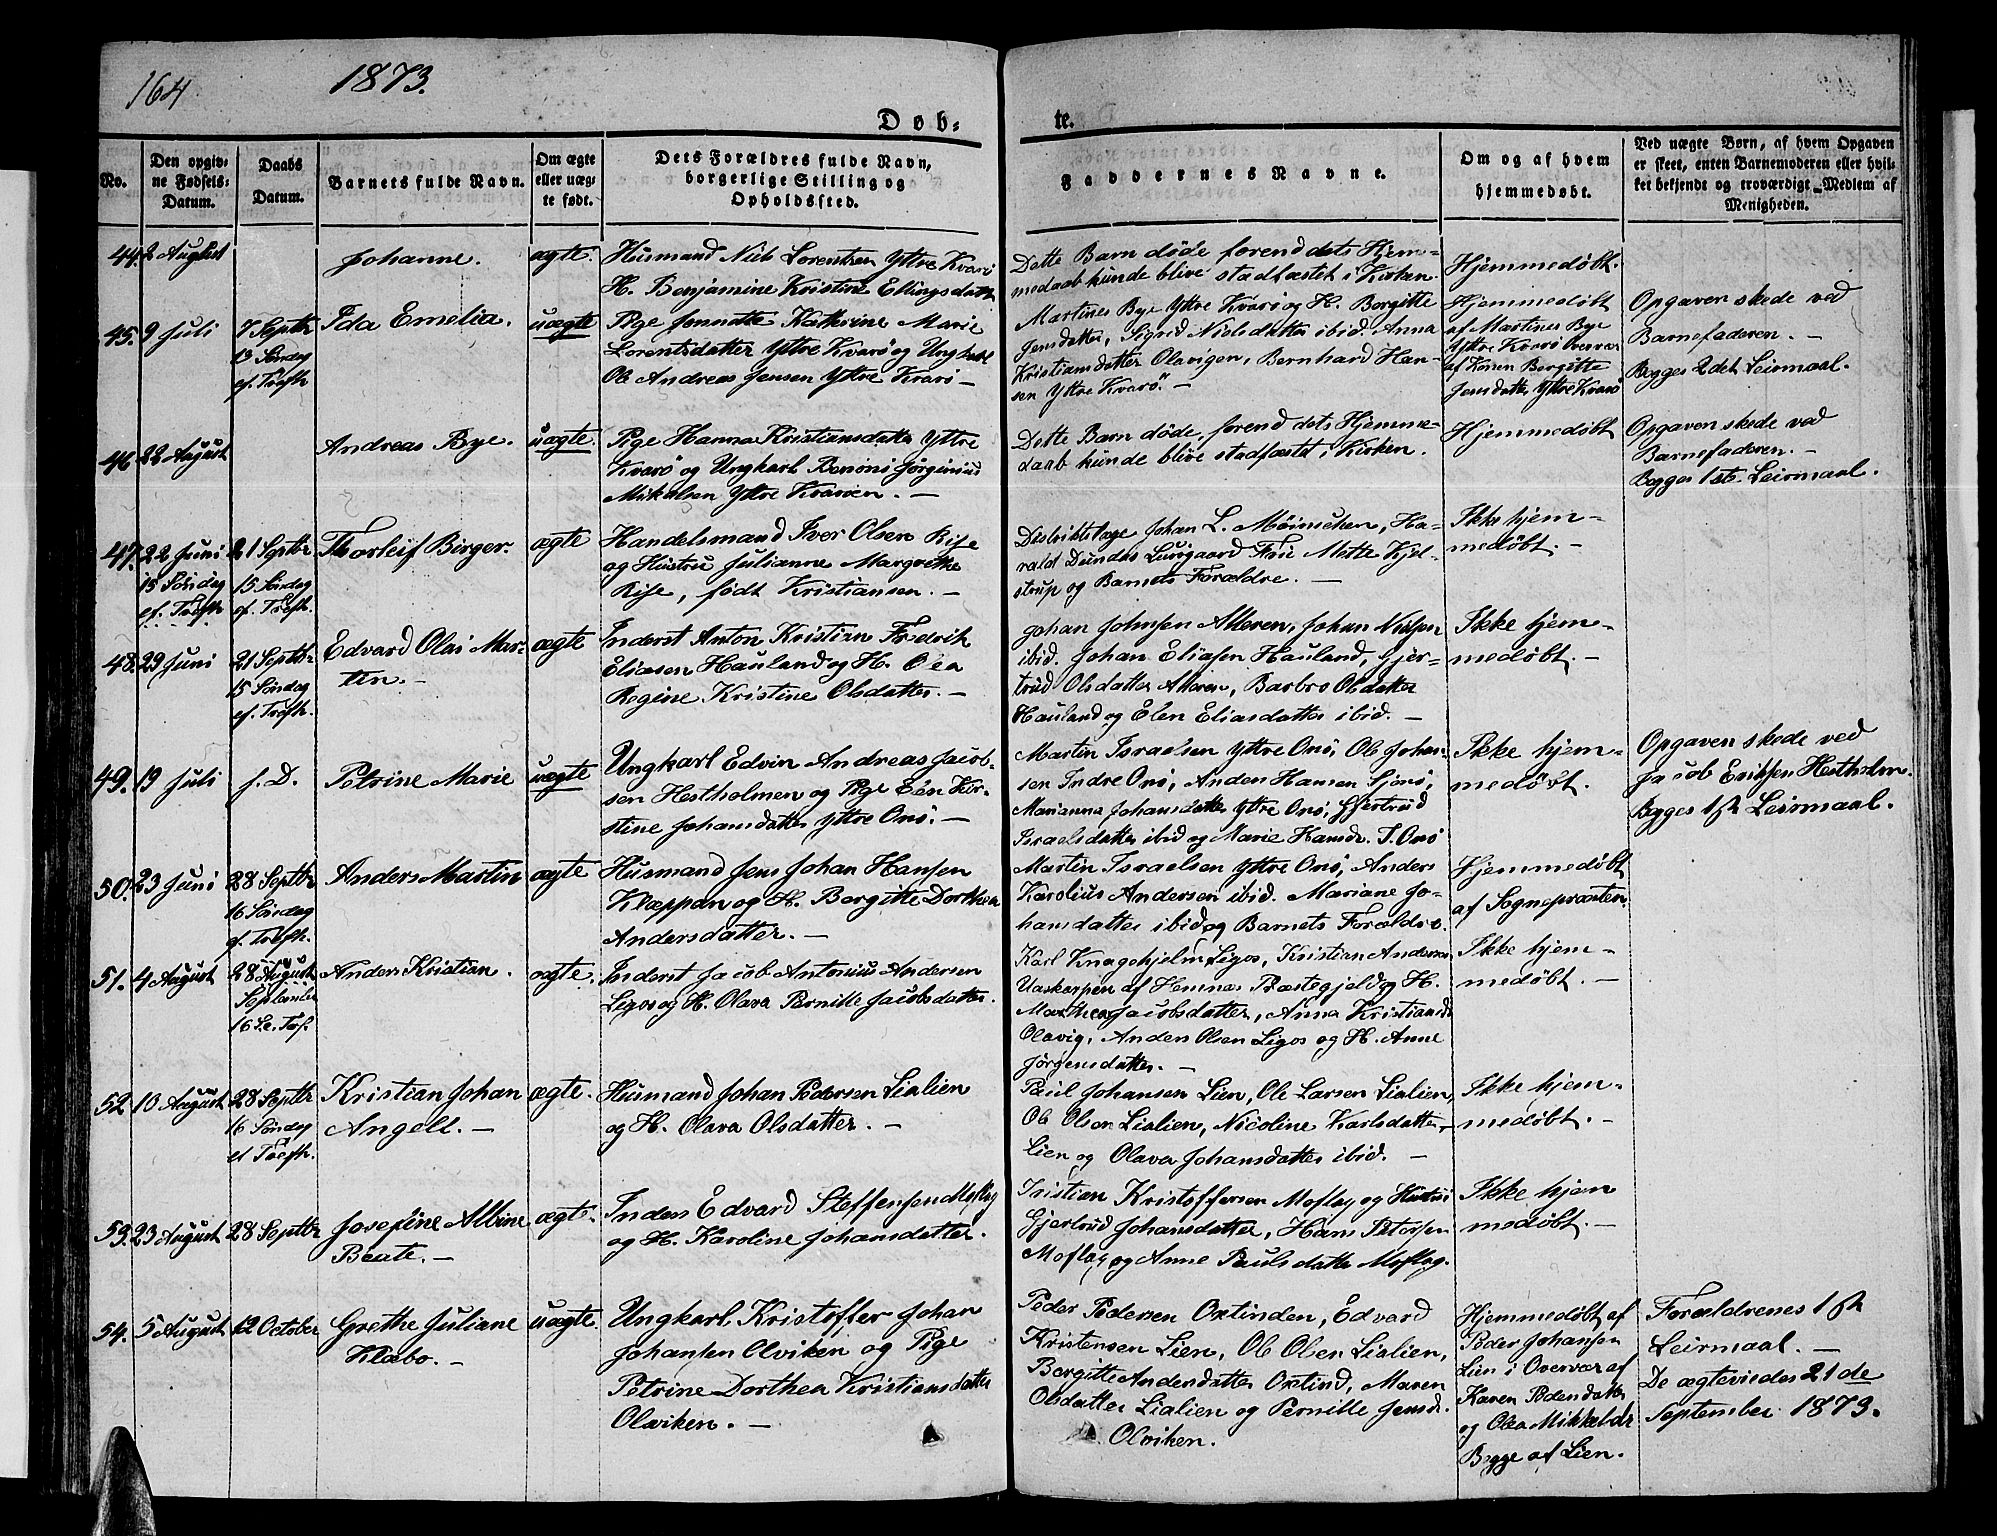 164
1873.
Døb-
te.
No.
Den opgiv-
ne Fødsels-
Datum.
Daabs
Datum.
Barnets fulde Navn.
Om ægte
eller uæg-
te født.
Dets Forældres fulde Navn,
borgerlige Stilling og
Opholdssted.
Faddernes Navne.
Om og af hvem
hjemmedøbt.
Ved uægte Børn, af hvem Opgaven
er skeet, enten Barnemoderen eller hvil-
ket bekjendt og troværdigt Medlem af
Menigheden.
44. 2 August
Johanne.
ægte.
Husmand Niels Lorentsen Yttre Kvarø
H. Benjamine Kristine Ellingsdatt
Dette Barn døde førend dets Hjem-
medaab kunde blive stadfæstet i Kirken.
Hjemmedøbt.
45. 9 Juli
7 Septbr
13 Søndag
ef. Trefh
Ida Emelia.
uægte
Pige Katherine Marie
Lorentsdatter Yttre Kvarø og Ungkarl
Ole Andreas Jensen Yttre Kvarø –
Martines Bye Yttre Kvarø og H. Borgitte
Jensdatter, Sigrid Nielsdatter ibid. Anna
Kristiansdatter Olavigen, Bernhard Han-
sen Yttre Kvarø. –
Hjemmedøbt
af Martines Bye
Yttre Kvarø Overvær
af Konen Bergitte
Jensdatter Yttre Kvarø
Opgaven skede ved
Barnefaderen. –
Begges 2det Leirmaal.
46. 22 August
Andreas Bye.
uægte.
Pige Hanna Kristiansdatter Yttre
Kvarø og Ungkarl Benoni Jørginius
Mikalsen Yttre Kvarøen. –
Dette Barn døde, førend dets Hjemme-
daab kunde blive stadfæstet i Kirken.
Hjemmedøbt
Opgaven skede ved
Barnefaderen. –
Begges 1ste Leirmaal.
47. 22 Juni
15 Søndag
ef. Trefh
21 Septbr
15 Søndag
ef. Trefh.
Thorleif Birger.
ægte
Handelsmand Iver Olsen Rise
og Hustru Julianne Margrethe
Rise, født Kristiansen. –
Distriktslæge Johan L. Møinichen, Ha-
rald Dundas Lunggaard Frue Mette Kjel-
strup og Barnets Forældre. –
Ikke hjem-
medøbt. –
48. 29 Juni
21 Septbr
15 Søndag
ef. Trefh.
Edvard Olai Mar-
tin. –
ægte
Inderst Anton Kristian Fredrik
Eliasen Hauland og H. Olea
Regine Kristine Olsdatter. –
Johan Johnsen Alteren, Johan Nilsen
ibid. Johan Eliasen Hauland, Gjer-
trud Olsdatter Alteren, Barbro Olsdatter
Hauland og Elen Eliasdatter ibid. –
Ikke hjem-
medøbt. –
49. 19 Juli
s. D.
Petrine Marie
uægte
Ungkarl Edvin Andreas Jacob-
sen Hestholmen og Pige Elen Kir-
stine Johansdatter Yttre Onø. –
Martin Israelsen Yttre Onø, Ole Johan-
sen Indre Onø, Anders Hansen Sjonø,
Marianna Johansdatter Yttre Onø, Gjertrud
Israelsdatter ibid og Marie Hansdr. I. Onø
Ikke hjem-
medøbt.
Opgaven skede ved
Jacob Eriksen Hestholm.
Begges 1ste Leirmaal.
50. 23 Juni
28 Septbr
16 Søndag
ef. Trefh.
Anders Martin
ægte
Husmand Jens Johan Hansen
Klæppan og H. Bergitte Dorthea
Andersdatter. –
Martin Israelsen Yttre Onø, Anders
Karolius Andersen ibid. Mariane Jo-
hansdatter ibid og Barnets Forældre.
Hjemmedøbt
af Sognepræsten.
51. 4 August
28 August
September
16 Se. Tref.
Anders Kristian.
ægte.
Inderst Jacob Antonius Andersen
Ligos og H. Olava Pernille Jacobsdatter.
Karl Knagehjelm Ligos, Kristian Andersen
Uaskarpen af Hemnes Præstegjeld og H.
Marthea Jacobsdatter, Anna Kristiansdr
Olavig, Anders Olsen Ligos og H. Anne
Jørgensdatter. –
Ikke hjem-
medøbt. –
52. 10 August
28 Septbr
16 Søndag
ef Trefh.
Kristian Johan
Angell. –
ægte.
Husmand Johan Pedersen Lialien
og H. Olava Olsdatter. –
Paul Johansen Lien, Ole Larsen Lialien,
Ole Olsen Lialien, Nicoline Karlsdatter
Lien og Olava Johansdatter ibid. –
Ikke hjem-
medøbt. –
53. 23 August
28 Septbr
Josefine Albine
Beate. –
ægte.
Inders Edvard Steffensen Moflag
og H. Karoline Johansdatter.
Kristian Kristoffersen Moflag og Hustru
Gjertrud Johansdatter, Hans Petersen
Moflag og Anne Paulsdatter Moflag.
Ikke hjem
medøbt. –
54. 5 August
12 October
Grethe Juliane
Klæbo. –
uægte.
Ungkarl Kristoffer Johan
Johansen Olviken og Pige
Petrine Dorthea Kristiansdatter
Olviken. –
Peder Pedersen Oxtinden, Edvard
Kristensen Lien, Ole Olsen Lialien,
Bergitte Andersdatter Oxtind, Maren
Olsdatter Lialien og Pernille Jensdr.
Olviken.
Hjemmedøbt af
Peder Johansen
Lien i Overvær af
Karen Pedersdatter
og Olea Mikkelsdr
Begge af Lien.
Forældrenes 1ste
Leirmaal. –
De ægteviedes 21de
September 1873.